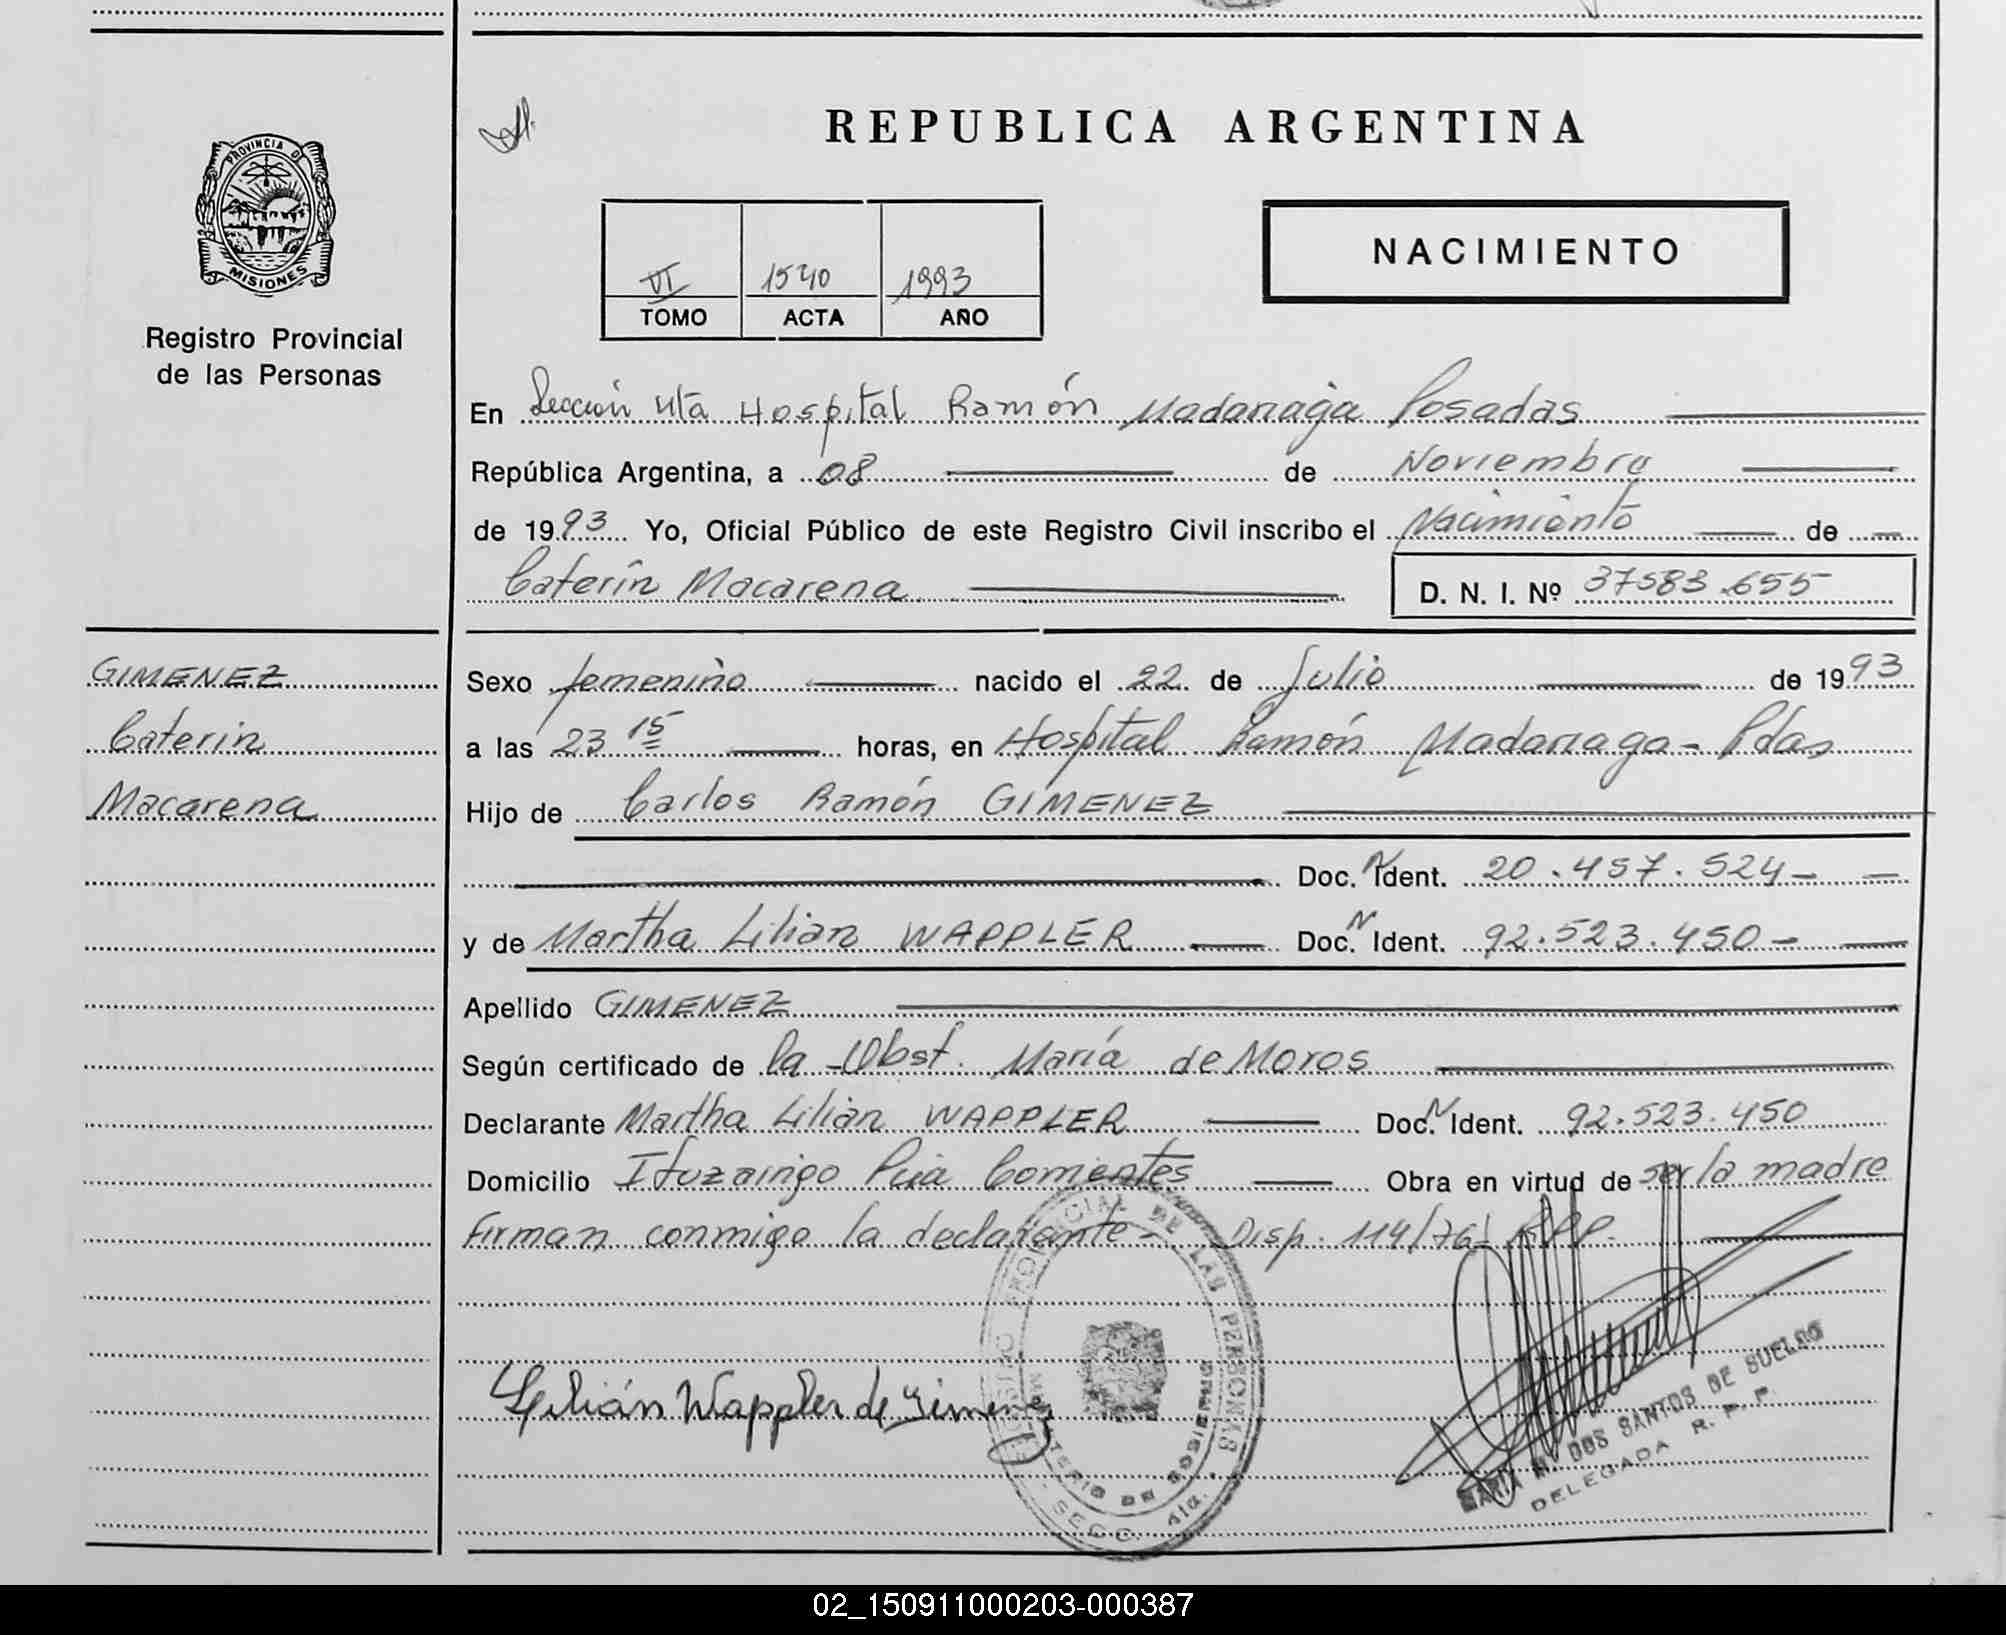 REPUBLICA ARGENTINA
PROVINCIA DE
MISIONES
Registro Provincial
de las Personas
VI 1540 1993
TOMO ACTA AÑO
NACIMIENTO
En Sección 4ta Hospital Ramón Madariaga Posadas
República Argentina, a 08 de Noviembre
de 1993 Yo, Oficial Público de este Registro Civil inscribo el Nacimiento de
Caterin Macarena D. N. I. Nº 37583.655
GIMENEZ
Caterin
Macarena
Sexo femenino nacido el 22 de Julio de 1993
a las 23 15 horas, en Hospital Ramón Madariaga - Pdas
Hijo de Carlos Ramón GIMENEZ
Doc. N Ident. 20.457.524-
y de Martha Lilian WAPPLER Doc. N Ident. 92.523.450-
Apellido GIMENEZ
Según certificado de la Obst. María de Moros
Declarante Martha Lilian WAPPLER Doc. N Ident. 92.523.450
Domicilio Ituzaingo Pcia Corrientes Obra en virtud de ser la madre
Firman conmigo la declarante- Disp. 114/76/ RPP.
Lilián Wappler de Gimenez
PROVINCIAL DE LAS PERSONAS
DE GOBIERNO
SECC. 4ta.
MARIA DOS SANTOS DE SUELDO
DELEGADA R. P. P.
02_150911000203-000387